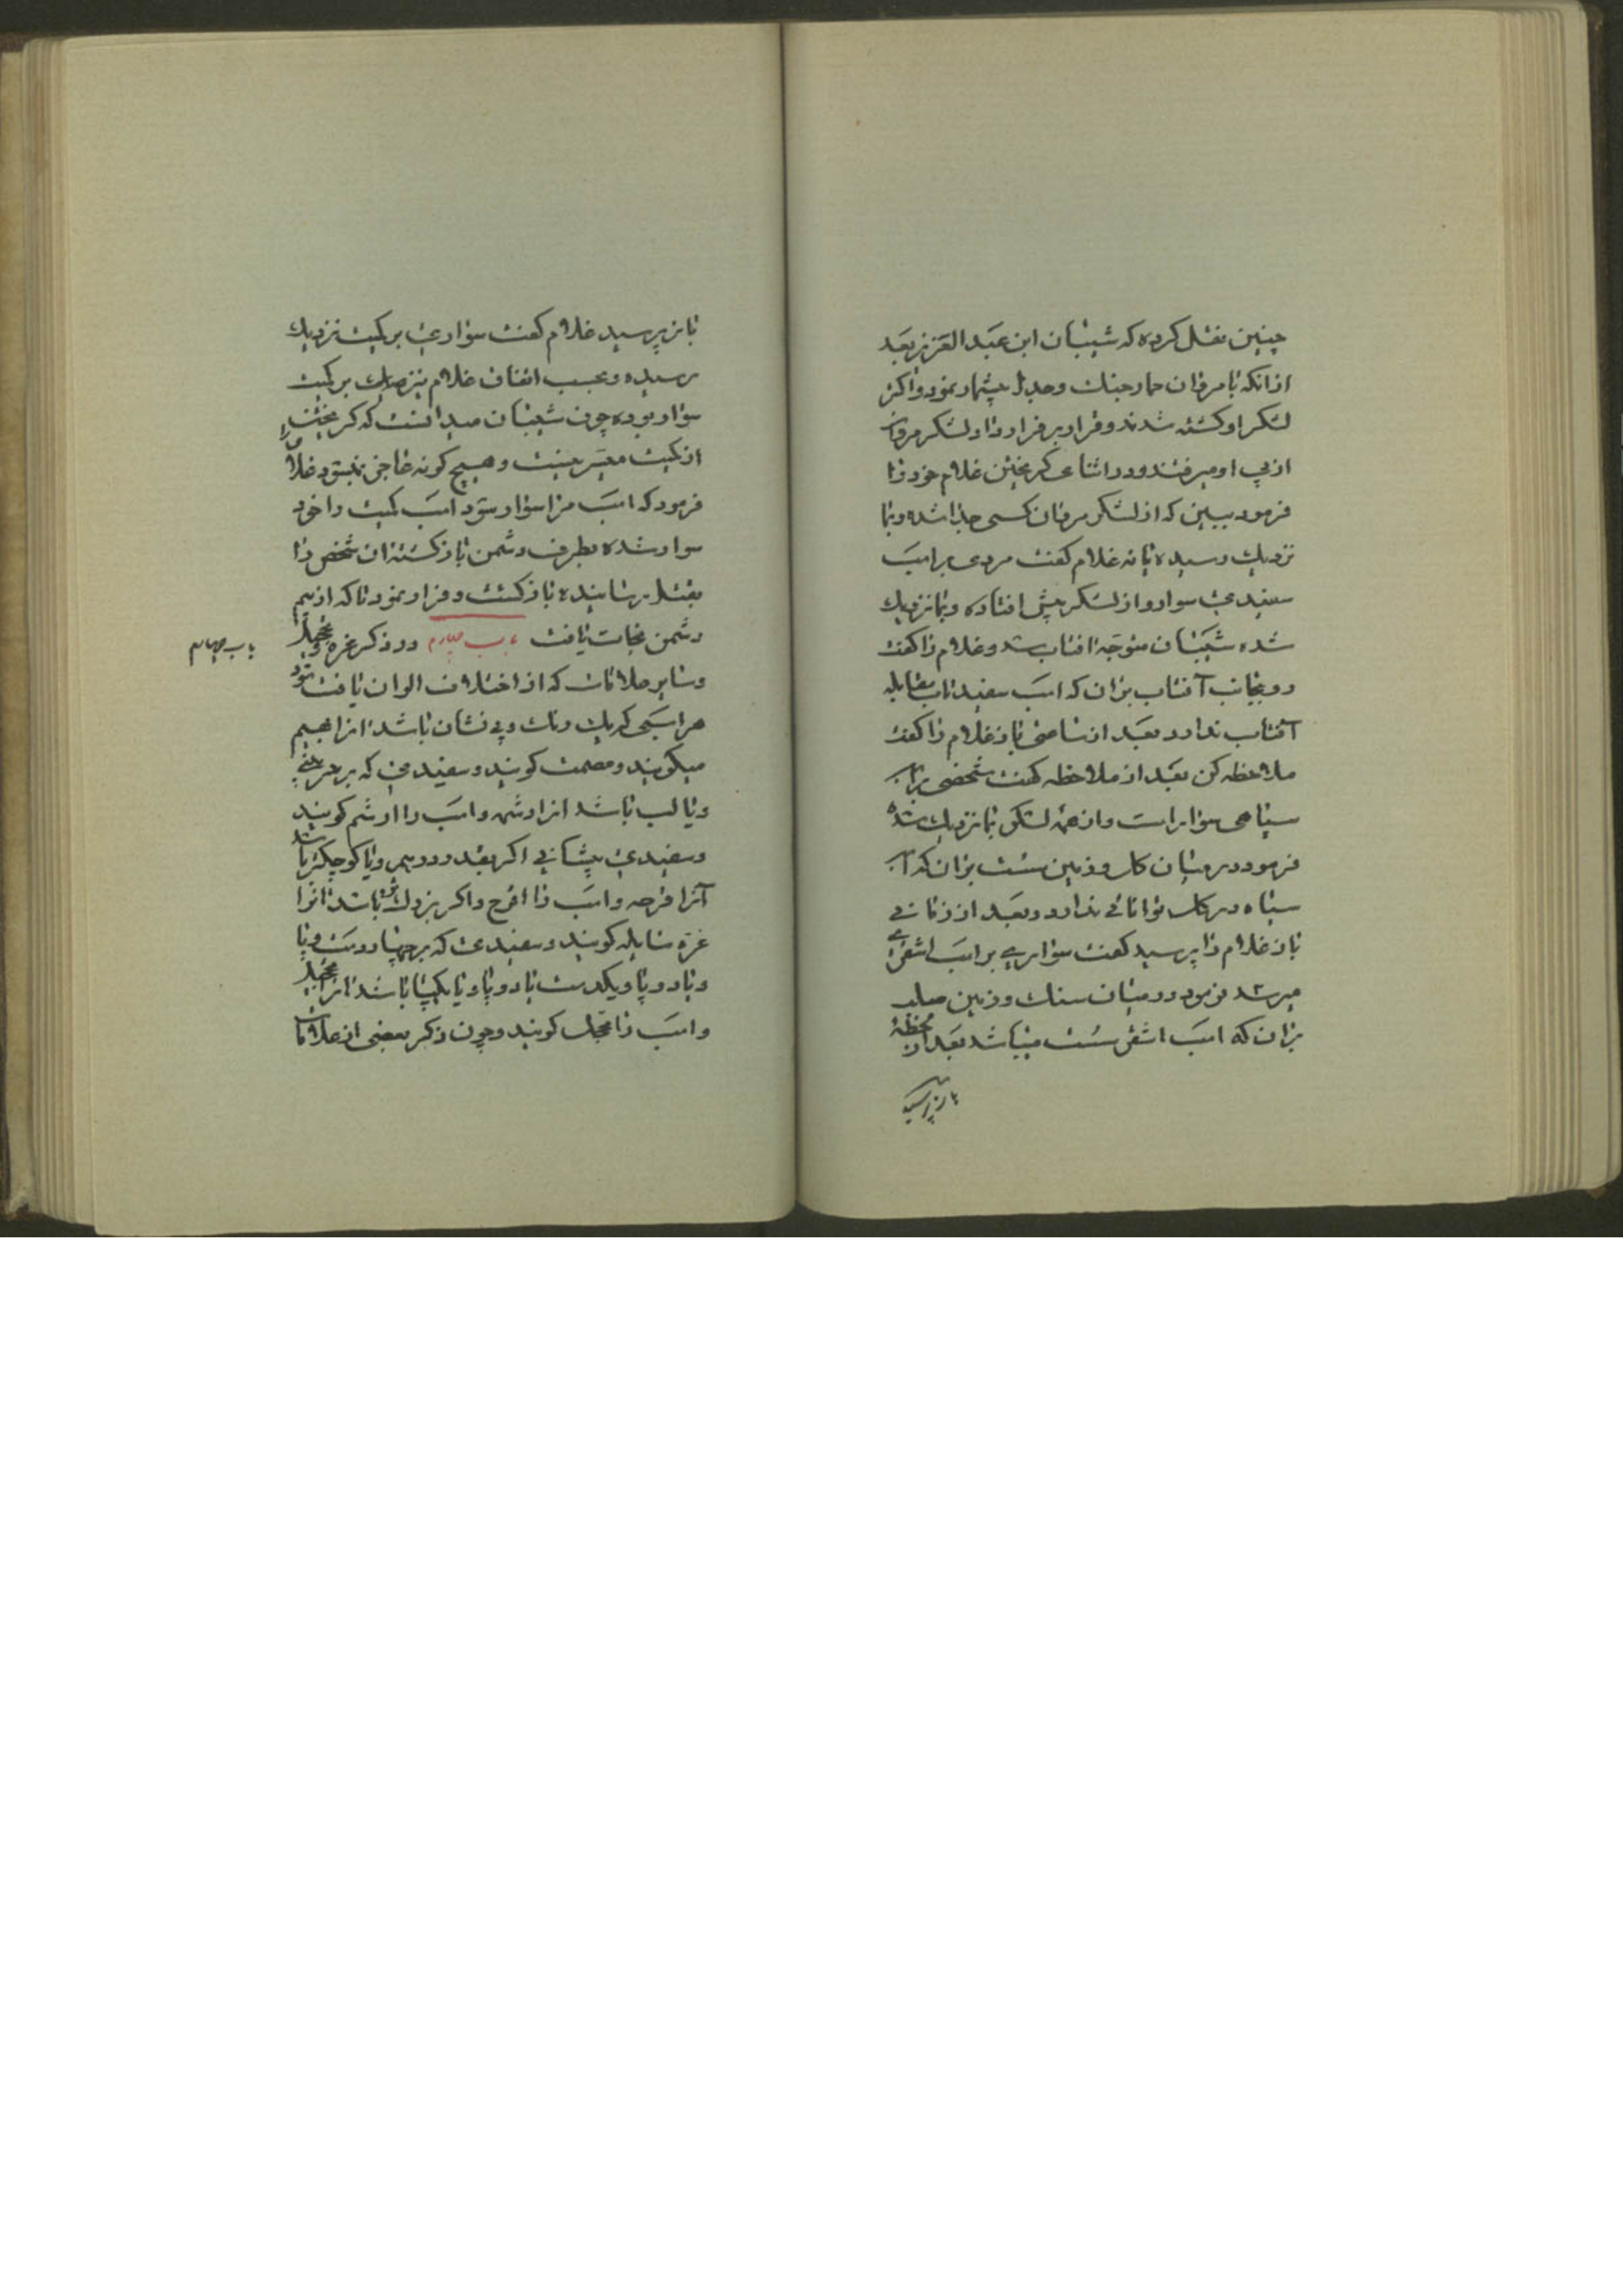 چنین نقل کرده که شیبان ابن عبد العزیز بعد
از انکه با مروان حمار جنك وجدل بیشمار نمود واکثر
لشکر او کشته شدند وقرار بر فرار داد ولشکر مروان
از پی او میرفتند ودر اثنای کریختن غلام خود را
فرمود ببین که از لشکر مروان کسی جدا شده وبما
نزدیك رسیده یا نه غلام کفت مردی بر اسب
سفیدی سوار واز لشکر پیش افتاده وبما نزدیك
شده شیبان متوجه افتاب شد وغلام را کفت
رو بجانب آفتاب بران که اسب سفید تاب مقابله
آفتاب ندارد بعد از ساعتی باز غلام را کفت
ملاحظه کن بعد از ملاحظه کفت شخصی بر اسب
سیاهی سوار است واز همه لشکر بما نزدیك شده
فرمود در میان کل وزمین سست بران که اسب
سیاه در کل توانائی ندارد وبعد از زمانی
باز غلام را پرسید کفت سواری بر اسب اشقری
میرسد فرمود در میان سنك وزمین صلب
بران که اسب اشقر سست میباشد بعد از لحظهٔ
باز پرسید
باز پرسید غلام کفت سواری بر کمیت نزدیك
رسیده وبحسب اتفاق غلام نیز بر کمیت
سوار بوده چون شیبان میدانست که کریختن
از کمیت میسر نیست وهیچ کونه عاجز نمیشود غلام را
فرمود که اسب مرا سوار شو واسب کمیت را خود
سوار شده بطرف دشمن باز کشته ان شخص را
بقتل رسانیده باز کشت وفرار نمود تا که از بیم
دشمن نجات یافت باب چهارم در ذکر غره وتحجیل
باب چهارم
وسایر علامات که از اختلاف الوان یافت شود
هر اسبی که یك رنك وبی نشان باشد انرا بهیم
میکویند ومصمت کویند وسفیدی که بر سر بینی
ویا لب باشد انرا رثمه واسب را ارثم کویند
وسفیدی پیشانی اکر بقدر درهمی ویا کوچکتر باشد
آنرا قرحه واسب را اقرح واکر بزرك تر باشد انرا
غره سایله کویند وسفیدی که بر چهار دست وپا
ویا دو پا ویکدست یا دو پا ویا یکپا باشد انرا تحجیل
واسب را محجل کویند وچون ذکر بعضی از علامات